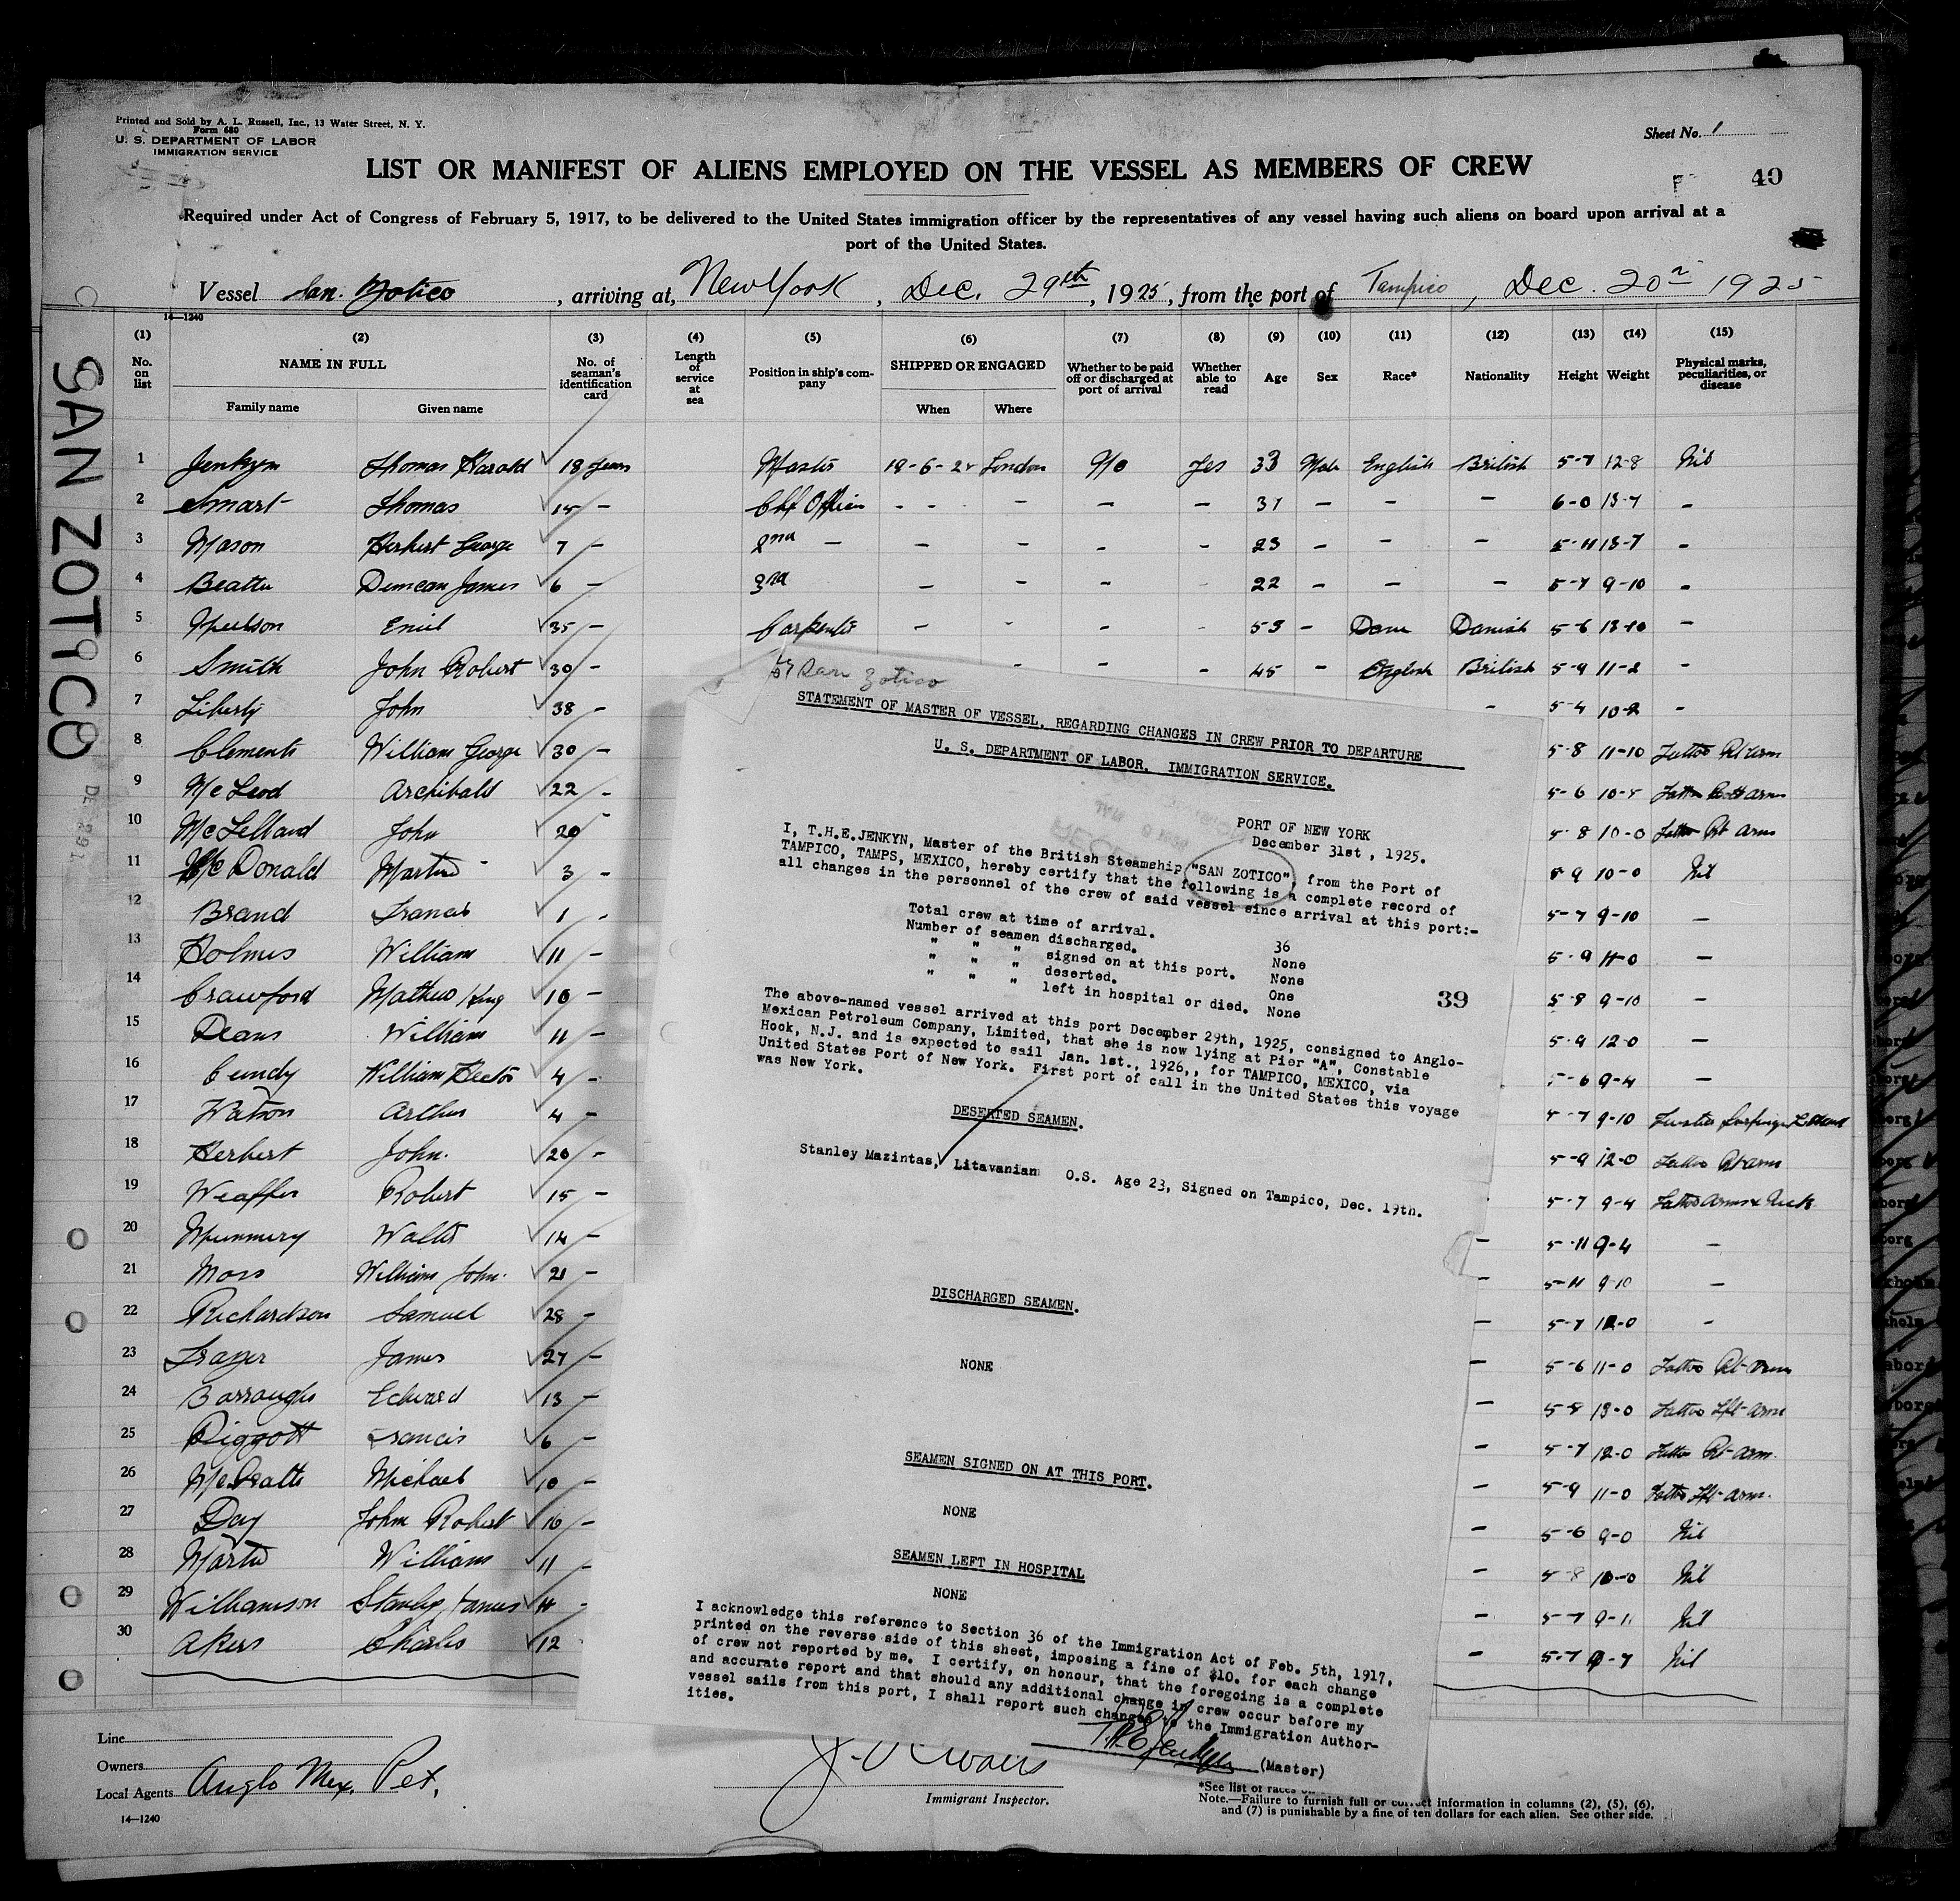 Printed and Sold by A. L. Russell, Inc., 13 Water Street, N. Y.
Form 680
U. S. DEPARTMENT OF LABOR
IMMIGRATION SERVICE
Sheet No. 1
LIST OR MANIFEST OF ALIENS EMPLOYED ON THE VESSEL AS MEMBERS OF CREW
40
Required under Act of Congress of February 5, 1917, to be delivered to the United States immigration officer by the representatives of any vessel having such aliens on board upon arrival at a
port of the United States.
Vessel San. Zotico, arriving at, New York, Dec. 29th, 1925, from the port of Tampico, Dec. 20th 1925
14—1240
(1) (2) (3) (4) (5) (6) (7) (8) (9) (10) (11) (12) (13) (14) (15)
No. on list
NAME IN FULL
Family name Given name
No. of seaman's identification card
Length of service at sea
Position in ship's company
SHIPPED OR ENGAGED
When Where
Whether to be paid off or discharged at port of arrival
Whether able to read
Age
Sex
Race*
Nationality
Height
Weight
Physical marks, peculiarities, or disease
SAN ZOTICO
1 Jenkyn Thomas Harold 18 years Master London No Yes 33 Male English British 5-7 12-8 Nil
2 Smart Thomas 15 — Chf Officer - - — — — 37 — — — 6-0 13-7 —
3 Mason Herbert George 7 — 2nd — — — — — 23 — — — 5-11 13-7 —
4 Beattie Duncan James 6 — 3rd — — — 22 — — — 5-7 9-10 —
5 Emil 35 — Carpenter — - — 53 — Dane Danish 5-6 13-10 —
6 Smith John Robert 30 — — — — 45 — English British 5-9 11-2 —
7 Liberty John 38 — - 5-4 10-2 —
8 Clements William George 30 — 5-8 11-10 Tattoo Rt arm
9 McLeod Archibald 22 — 5-6 Tattoo Both arms
10 McLelland John 20 — 5-8 10-0 Tattoo Rt arm
11 McDonald Martin 3 — 5-9 10-0 Nil
12 Brand Francis 1 — 5-7 9-10 —
13 Holmes William 11 — 5-9 11-0 —
14 Crawford Mathew King 10 — 5-8 9-10 —
15 Deans William 11 — 5-9 12-0 —
16 Cundy William Hector 4 — 5-6 9-4 —
17 Watson Arthur 4 — 5-7 9-10
18 Herbert John. 20 — 5-9 12-0 Tattoo Rt arm
19 Weaffer Robert 15 — 5-7 9-4 Tattoo Arms & Neck
20 Walter 14 — — 5-11 9-4 —
21 Moss William John. 21 — — 5-11 9-10 —
22 Richardson Samuel 28 — — 5-7 12-0 —
23 James 27 — — 5-6 11-0 Tattoo Rt arm
24 Barroughs Edward 13 — — 5-8 13-0 Tattoo Lft arm
25 Piggott Francis 6 — — 5-7 12-0 Tattoo Rt arm.
26 Michael 10 — — 5-9 11-0 Tattoo Lft arm.
27 Day John Robert 16 — — 5-6 9-0 Nil
28 Martin William 11 — — 5-8 10-0 Nil
29 Williamson Stanley James 11 — — 5-7 9-11 Nil
30 Akers Charles 12 — 5-7 9-7 Nil
San Zotico
STATEMENT OF MASTER OF VESSEL, REGARDING CHANGES IN CREW PRIOR TO DEPARTURE
U. S. DEPARTMENT OF LABOR, IMMIGRATION SERVICE.
PORT OF NEW YORK
December 31st, 1925.
I, T.H.E.JENKYN, Master of the British Steamship "SAN ZOTICO", from the Port of
TAMPICO, TAMPS, MEXICO, hereby certify that the following is a complete record of
all changes in the personnel of the crew of said vessel since arrival at this port:-
Total crew at time of arrival. 36
Number of seamen discharged. None
" " " signed on at this port. None
" " " deserted. One
" " " left in hospital or died. None
39
The above-named vessel arrived at this port December 29th, 1925, consigned to Anglo-
Mexican Petroleum Company, Limited, that she is now lying at Pier "A", Constable
Hook, N.J. and is expected to sail Jan. 1st., 1926,, for TAMPICO, MEXICO, via
United States Port of New York. First port of call in the United States this voyage
was New York.
DESERTED SEAMEN.
Stanley Mazintas, Litavanian O.S. Age 23, Signed on Tampico, Dec. 19th.
DISCHARGED SEAMEN.
NONE
SEAMEN SIGNED ON AT THIS PORT.
NONE
SEAMEN LEFT IN HOSPITAL
NONE
I acknowledge this reference to Section 36 of the Immigration Act of Feb. 5th, 1917,
printed on the reverse side of this sheet, imposing a fine of $10. for each change
of crew not reported by me. I certify, on honour, that the foregoing is a complete
and accurate report and that should any additional change in crew occur before my
vessel sails from this port, I shall report such changes to the Immigration Author-
ities.
T.H.E. Jenkyn (Master)
Line
Owners
Local Agents Anglo Mex. Pet,
14—1240
Immigrant Inspector.
*See list of races
Note.—Failure to furnish full or correct information in columns (2), (5), (6),
and (7) is punishable by a fine of ten dollars for each alien. See other side.